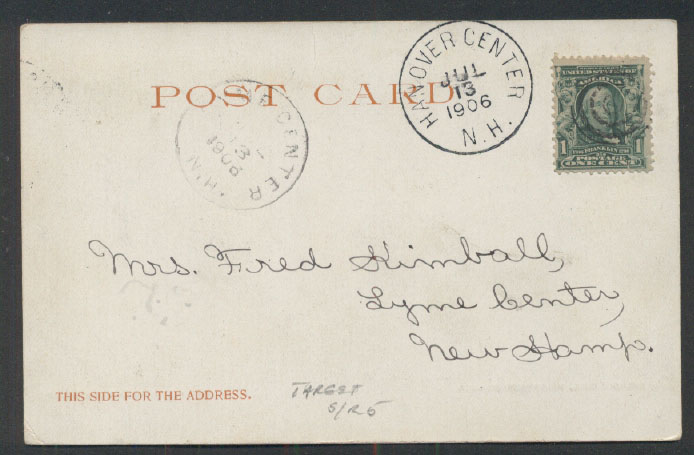 POST CARD
HANOVER CENTER
JUL
13
1906
N.H.
CENTER
13
1906
N.H.
UNITED STATES OF
AMERICA
FRANKLIN
POSTAGE
1 ONE CENT 1
Mrs. Fred Kimball,
Lyme Center,
New Hamp.
THIS SIDE FOR THE ADDRESS.
TARGET
S/R 5